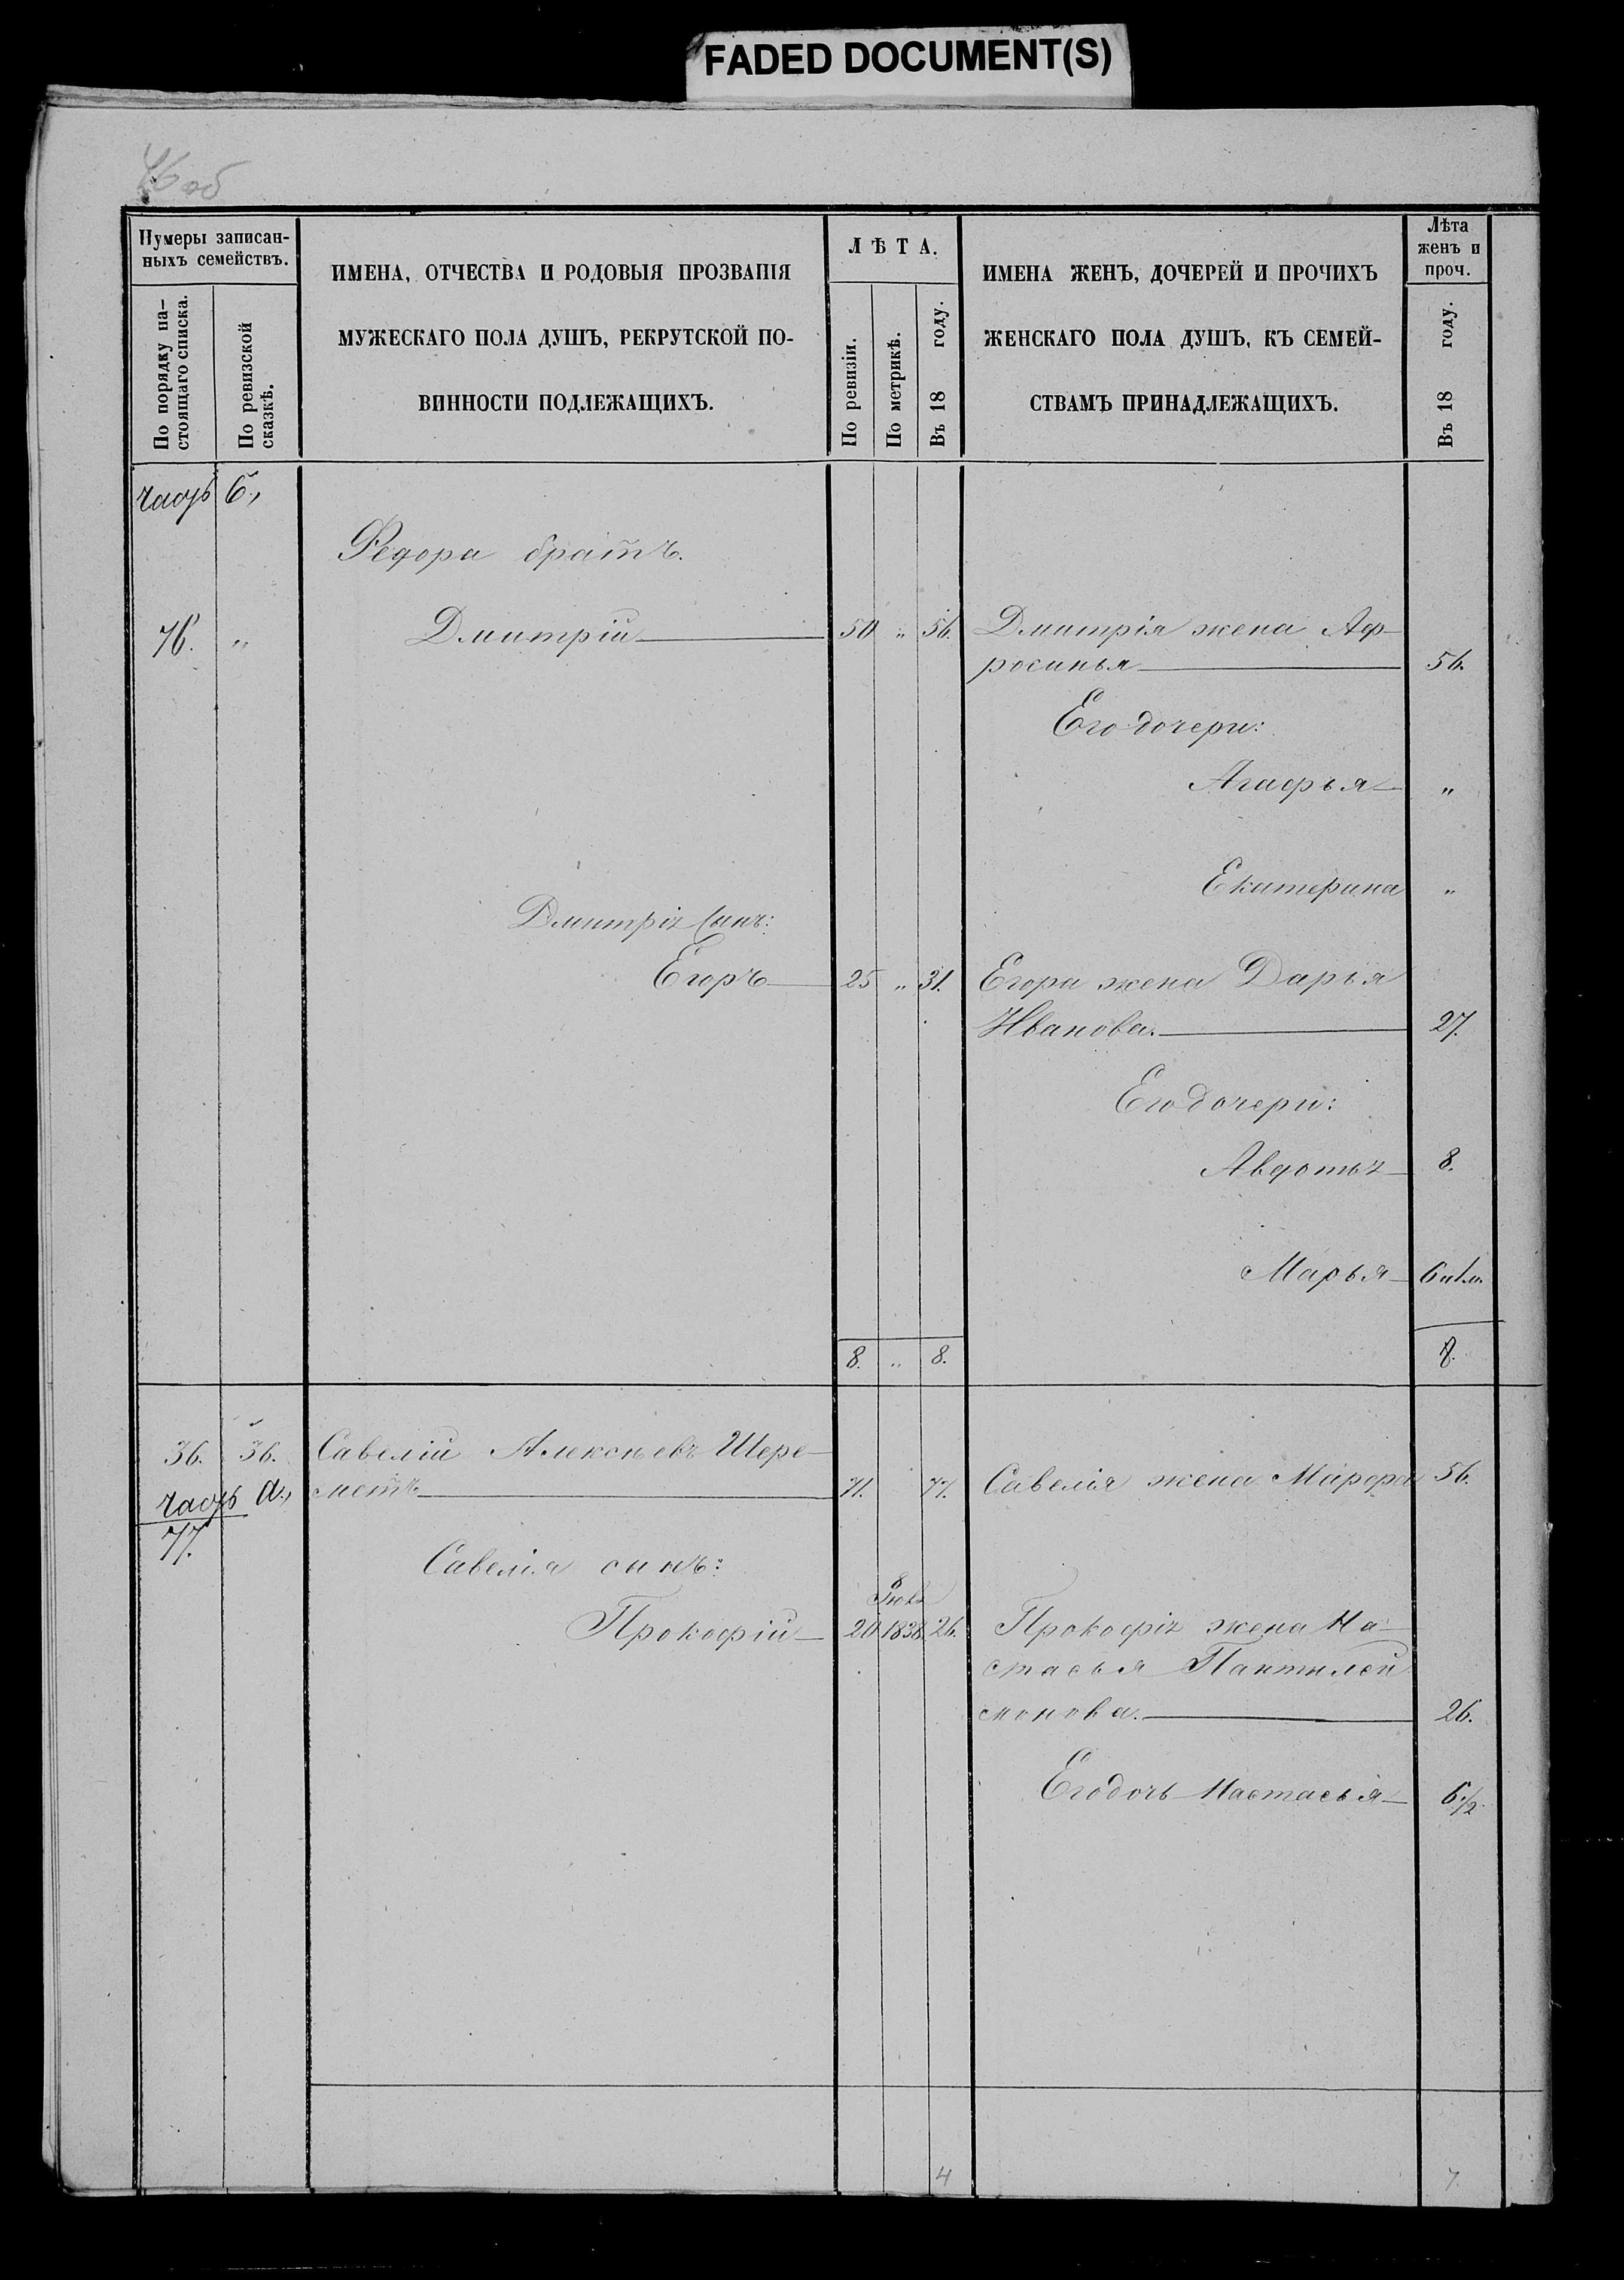 FADED DOCUMENT(S)
46 об
Нумеры записан-
ныхъ семействъ.
По порядку на-
стоящаго списка.
По ревизской
сказкѣ.
ИМЕНА, ОТЧЕСТВА И РОДОВЫЯ ПРОЗВАНІЯ
МУЖЕСКАГО ПОЛА ДУШЪ, РЕКРУТСКОЙ ПО-
ВИННОСТИ ПОДЛЕЖАЩИХЪ.
ЛѢТА.
По ревизіи.
По метрикѣ.
Въ 18 году.
ИМЕНА ЖЕНЪ, ДОЧЕРЕЙ И ПРОЧИХЪ
ЖЕНСКАГО ПОЛА ДУШЪ, КЪ СЕМЕЙ-
СТВАМЪ ПРИНАДЛЕЖАЩИХЪ.
Лѣта
женъ и
проч.
Въ 18 году.
часть б.,
Федора братъ.
76. " Дмитрій 50 " 56. Дмитрія жена Аф-
росинья 56.
Его дочери:
Агафья "
Екатерина "
Дмитрія сынъ:
Егоръ 25 " 31. Егора жена Дарья
Иванова. 27.
Его дочери:
Авдотья 8.
Марья
8. " 8.
36. 36. Савелій Алексѣевъ Шере-
часть а., метъ 71. 77. Савелія жена Марфа 56.
77.
Савелія сынъ:
Прокофій 20 1838. 26. Прокофія жена На-
стасья Пантилей
монова. 26.
Его дочь Настасья 6 1/2.
4 7